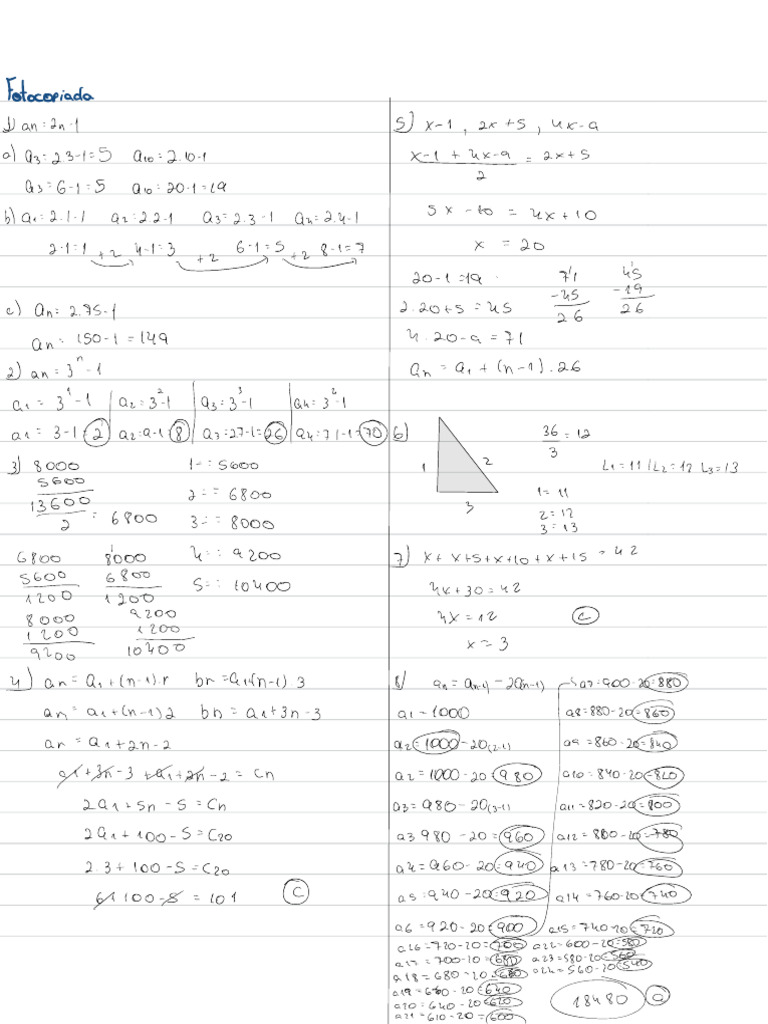 Fotocopiada
1) an = 2n-1
a) a3 = 2.3-1 = 5 a10 = 2.10-1
a3 = 6-1 = 5 a10 = 20-1 = 19
b) a1 = 2.1-1 a2 = 2.2-1 a3 = 2.3-1 a4 = 2.4-1
2-1 = 1 +2 4-1 = 3 +2 6-1 = 5 +2 8-1 = 7
c) an = 2.75-1
an = 150-1 = 149
2) an = 3^n - 1
a1 = 3^1-1 a2 = 3^2-1 a3 = 3^3-1 a4 = 3^4-1
a1 = 3-1 = 2 a2 = 9-1 = 8 a3 = 27-1 = 26 a4 = 71-1 = 70
3) 8000 1-: 5600
5600 2-= 6800
13600 3-: 8000
2 = 6800
6800 8000 4-: 9200
5600 6800 5-: 10400
1200 1200
8000 9200
1200 1200
9200 10400
4) an = a1+(n-1).r bn = a1+(n-1)3
an = a1+(n-1)2 bn = a1+3n-3
an = a1+2n-2
a1+3n-3+a1+2n-2 = Cn
2a1+5n-5 = Cn
2a1+100-5 = C20
2.3+100-5 = C20
61 100-5 = 101 C
5) x-1, 2x+5, 4x-9
x-1 + 4x-9 = 2x+5
2
5x-10 = 4x+10
x = 20
20-1 = 19 71 45
2.20+5 = 45 -45 -19
4.20-9 = 71 26 26
an = a1+(n-1).26
6) 36 = 12
3
1 2 3
L1=11/L2=12 L3=13
1 = 11
2 = 12
3 = 13
7) x+x+5+x+10+x+15 = 42
4x+30 = 42
4x = 12 C
x = 3
8) an = a(n-1) - 20(n-1)
a1 = 1000
a2 = 1000-20(2-1)
a2 = 1000-20 = 980
a3 = 980-20(3-1)
a3 980-20 = 960
a4 = 960-20 = 940
a5 = 940-20 = 920
a6 = 920-20 = 900
a16 = 720-20 = 700
a17 = 700-20 = 680
a18 = 680-20 = 660
a19 = 660-20 = 640
a20 = 640-20 = 620
a21 = 610-20 = 600
a7 = 900-20 = 880
a8 = 880-20 = 860
a9 = 860-20 = 840
a10 = 840-20 = 820
a11 = 820-20 = 800
a12 = 800-20 = 780
a13 = 780-20 = 760
a14 = 760-20 = 740
a15 = 740-20 = 720
a22 = 600-20 = 580
a23 = 580-20 = 560
a24 = 560-20 = 540
18480